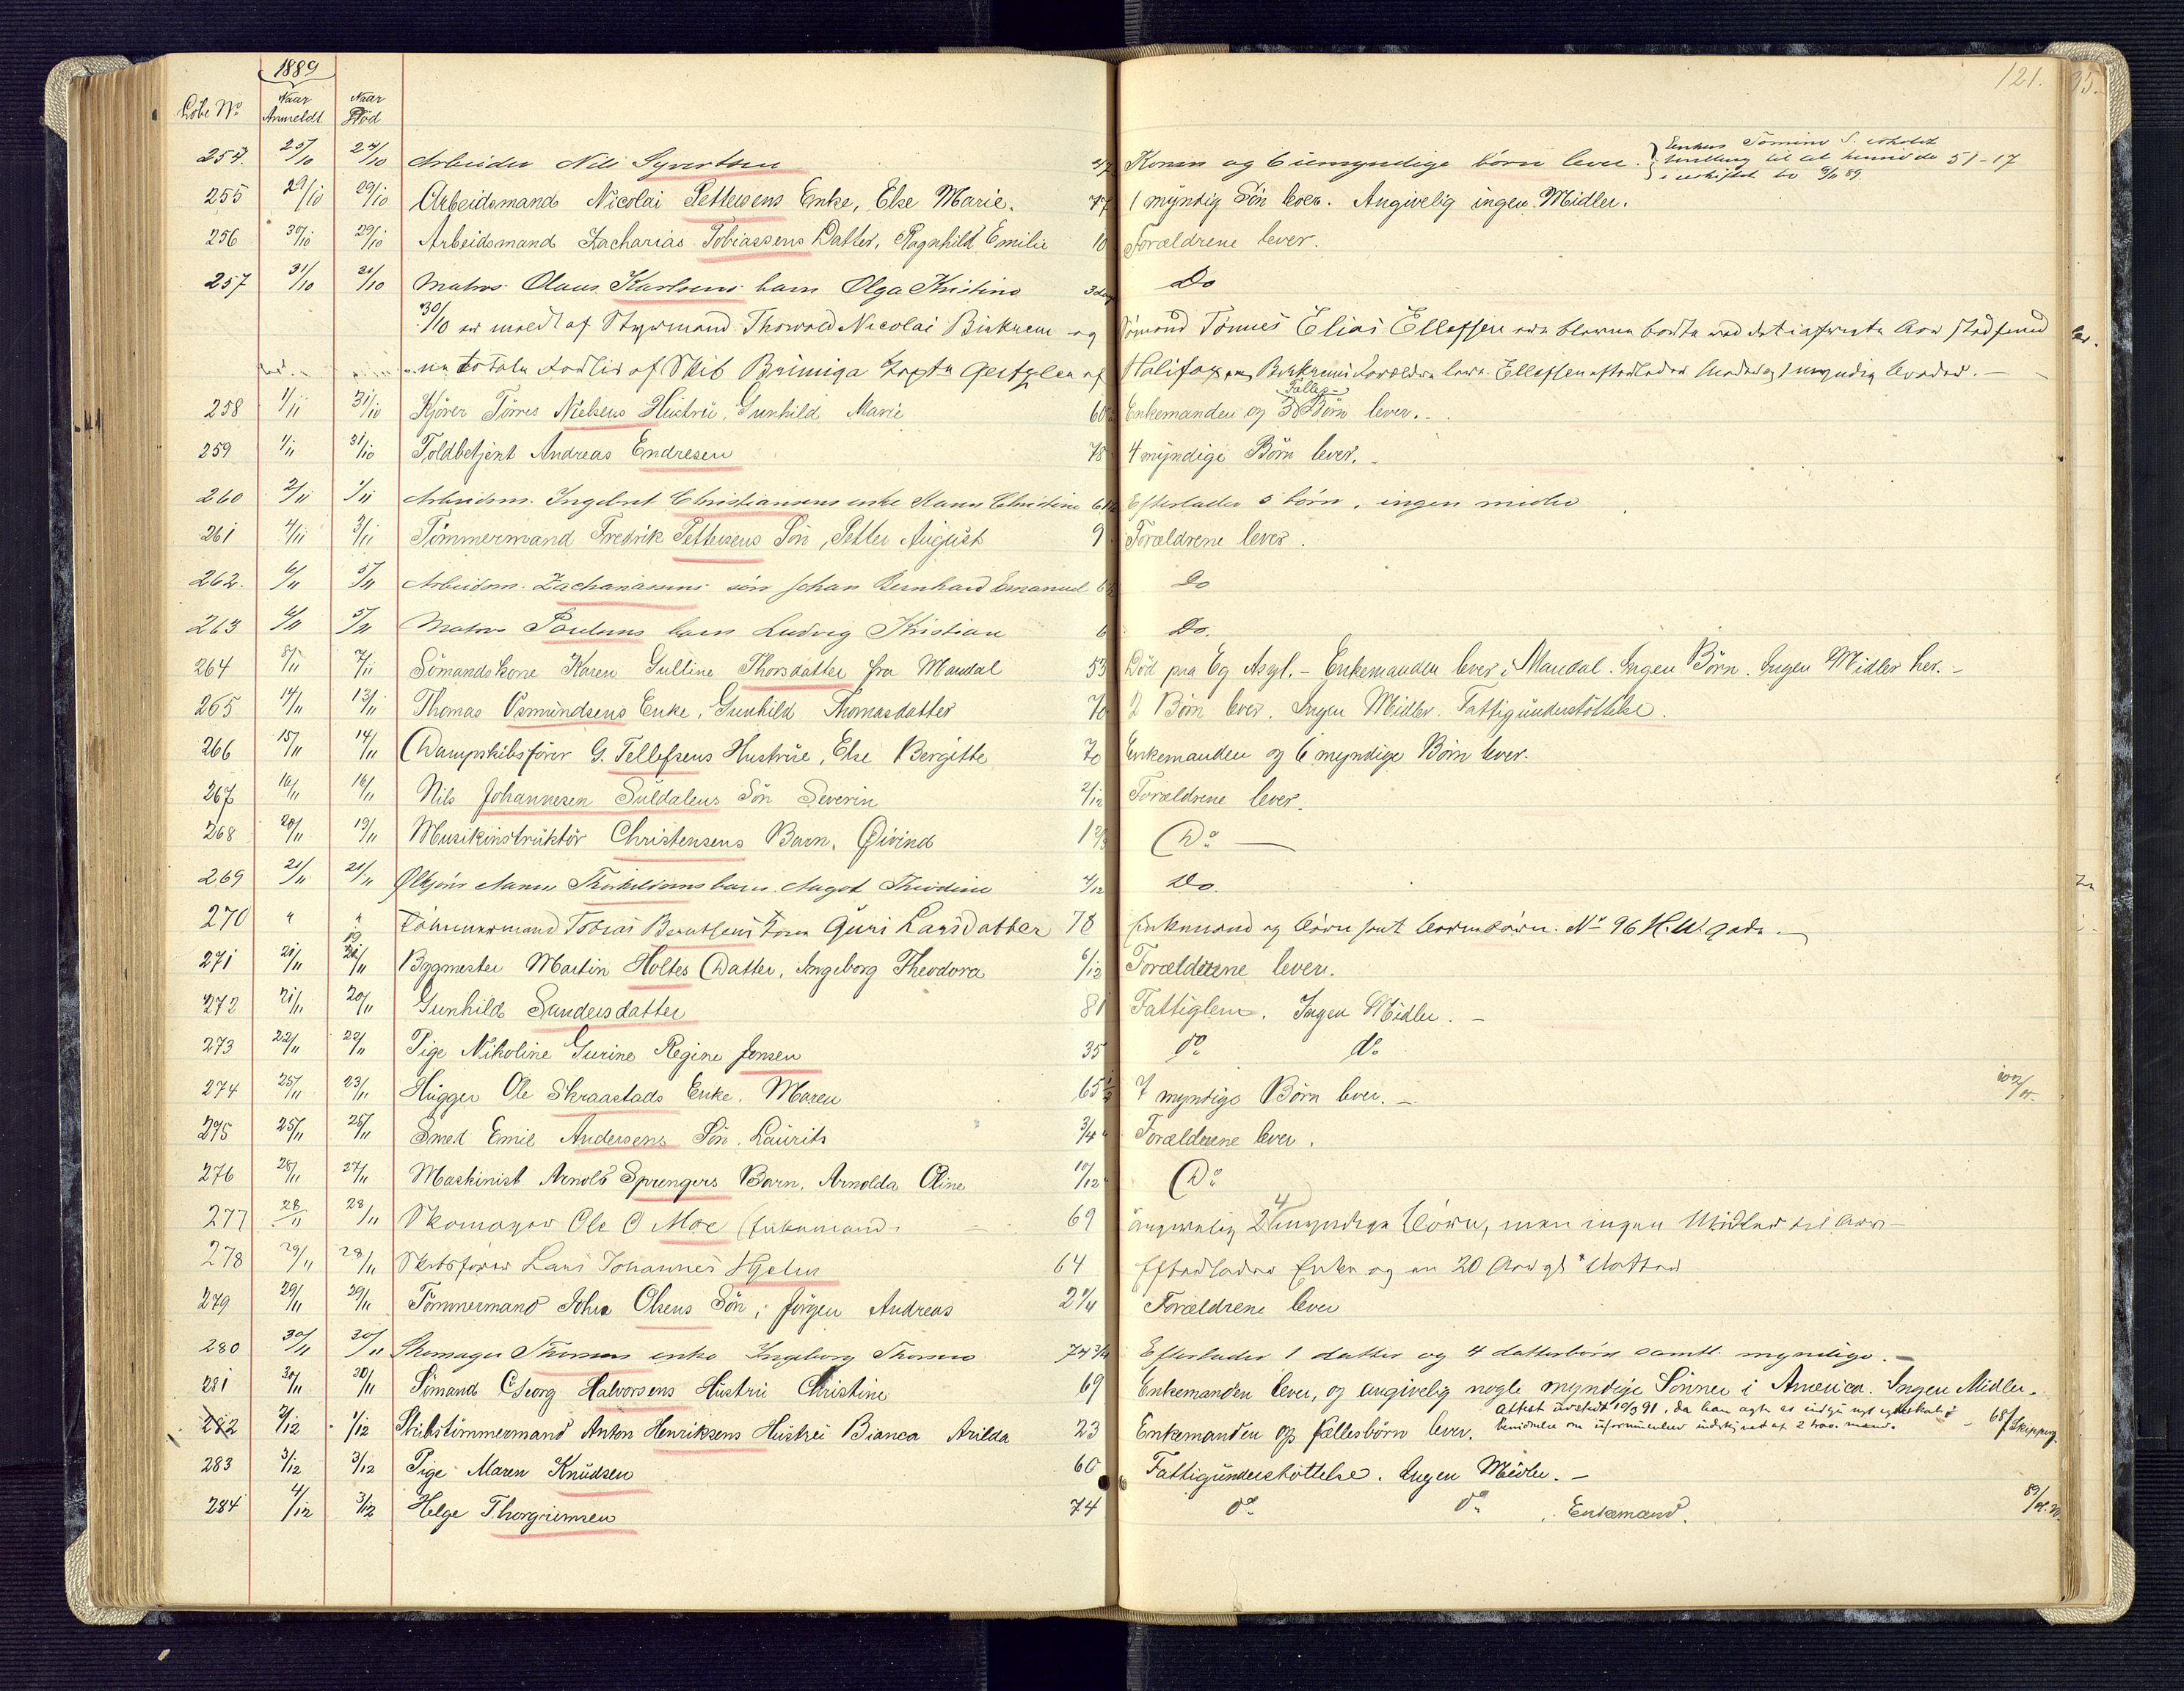 1889
121.
Löbe No Naar Anmeldt Naar Död
254. 25/10 24/10 Arbeider Nils Syvertsen 47 Konen og 6 umyndige börn lever.
255 29/10 29/10 Arbeidsmand Nicolai Pettersens Enke, Else Marie. 77 1 myndig Sön lever. Angivelig ingen Midler.
256 30/10 29/10 Arbeidsmand Zacharias Tobiassens Datter, Ragnhild Emilie 10 Forældrene lever.
257 31/10 21/10 Matros Olaus Karlsens barn Olga Kristine 3 dag Do
30/10 er meldt af Styrmand Thorvald Nicolai Birkrem og Sömand Tönnes Elias Ellefsen
Halifax Birkrems Forældre lever. Ellefsen efterlader
258 1/11 31/10 Kjörer Törres Nielsens Hustru, Gunhild Marie 60 Enkemanden og 3 Fælles- Börn lever.
259 1/11 31/10 Toldbetjent Andreas Endresen 78 4 myndige Börn lever.
260 2/11 1/11 Arbeidsm. Ingebret Christiansens enke Karen Christine 61 Efterlader 5 börn, ingen midler
261 4/11 3/11 Tömmermand Fredrik Pettersens Sön, Petter August 9 Forældrene lever.
262. 6/11 5/11 Arbeidsm. Zachariassens sön Johan Bernhard Emanuel 6 Do
263 6/11 5/11 Matros Paulsens barn Ludvig Kristian 6 Do.
264 8/11 7/11 Sömandskone Karen Gulline Thorsdatter fra Mandal 53 Död paa Eg Asyl. - Enkemanden lever i Mandal. Ingen Börn. Ingen Midler her. -
265 14/11 13/11 Thomas Osmundsens Enke, Gunhild Thomasdatter 70 2 Börn lever. Ingen Midler. Fattigunderstöttelse.
266 15/11 14/11 Dampskibsförer G. Tellefsens Hustrue, Else Bergitte 70 Enkemanden og 6 myndige Börn lever.
267 16/11 16/11 Nils Johannesen Suldalens Sön Severin 2/12 Forældrene lever.
268 20/11 19/11 Musikinstruktör Christensens Barn, Øivind 1 2/3 Do
269 21/11 21/11 barn Aagot Theodine 4/12 Do.
270 " " 19 Tömmermand Tobias Berntsens Kone Guri Larsdatter 78 Enkemand og börn samt börnebörn. No 96 H.W. gade.
271 21/11 20/11 Bygmester Martin Holtes Datter, Ingeborg Theodora 6/12 Forældrene lever.
272 21/11 20/11 Gunhild Sundersdatter 81 Fattiglem. Ingen Midler. -
273 22/11 22/11 Pige Nikoline Gurine Regine Jensen 35 do do
274 25/11 23/11 Hugger Ole Skraastads Enke, Maren 65 1/2 7 myndige Börn lever. -
275 25/11 25/11 Smed Emil Andersens Sön, Laurits 3/4 Forældrene lever.
276 28/11 27/11 Maskinist Arnold Sprengers Barn, Arnolda Oline 10/12 Do
277 28/11 28/11 Skomager Ole O Moe Enkemand. 69 angivelig 2 4 myndige börn, men ingen Midler til Arv -
278 29/11 28/11 Skibsförer Lars Johannes Hjelm 64 Efterlader Enke og en 20 Aar gl. Datter
279 29/11 29/11 Tömmermand John Olsens Sön, Jörgen Andreas 2 1/4 Forældrene lever
280 30/11 30/11 Skomager Thomas enke Ingeborg 74 3/4 Efterlader 1 datter og 4 datterbörn samtl. myndige. -
281 30/11 30/11 Sömand Georg Halvorsens Hustru Christine 69 Enkemanden lever, og angivelig nogle myndige Sönner i America. Ingen Midler.
282 2/12 1/12 Skibstömmermand Anton Henriksens Hustru Bianca Arilda 23 Enkemanden og fællesbörn lever. Attest udstedt 19/9 91, da han agter at indgå nyt egteskab
283 3/12 3/12 Pige Maren Knudsen 60 Fattigunderstöttelse. Ingen Midler. -
284 4/12 3/12 Helge Thorgrimsen 74 do do. Enkemand.